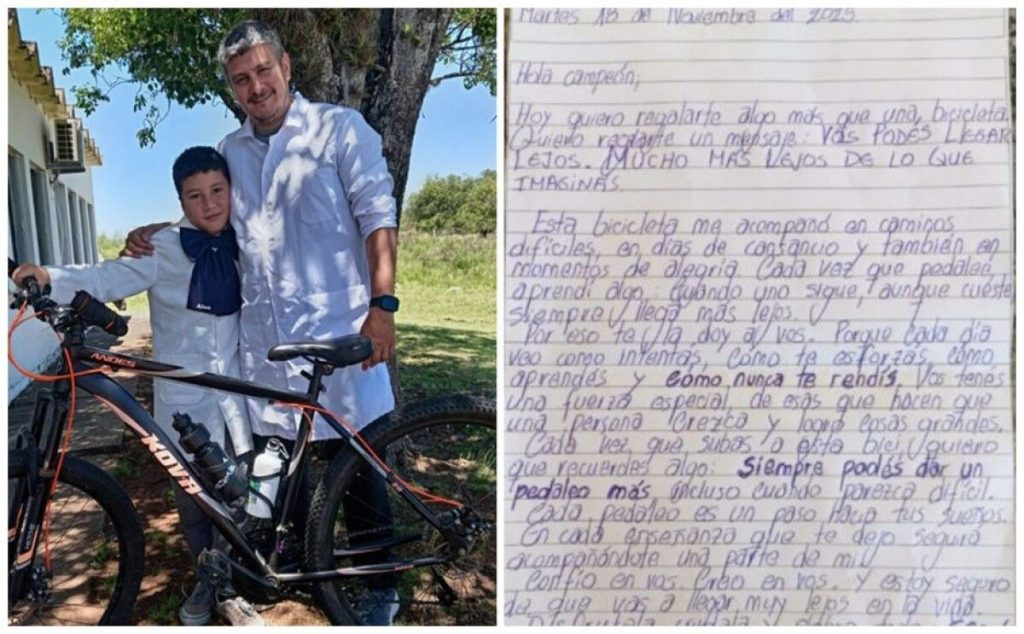 Alex
ANDES
KOVA
29
Martes 18 de Noviembre del 2025.
Hola campeón,
Hoy quiero regalarte algo más que una, bicicleta.
Quiero regalarte un mensaje: VOS PODÉS LLEGAR
LEJOS. MUCHO MÁS LEJOS DE LO QUE
IMAGINÁS.
Esta bicicleta me acompañó en caminos
difíciles, en días de cansancio y también en
momentos de alegría. Cada vez que pedaleé,
aprendí algo: cuando uno sigue, aunque cueste
siempre llega más lejos.
Por eso te la doy a vos. Porque cada día
veo como intentás, como te esforzás, como
aprendés y como nunca te rendís. Vos tenés
una fuerza especial de esas que hacen que
una persona crezca y logre cosas grandes.
Cada vez que subas a esta bici, quiero
que recuerdes algo: Siempre podés dar un
pedaleo más, incluso cuando parezca difícil.
Cada pedaleo es un paso hacia tus sueños.
En cada enseñanza que te dejo seguirá
acompañándote una parte de mí.
Confío en vos. Creo en vos. Y estoy seguro
de que vas a llegar muy lejos en la vida.